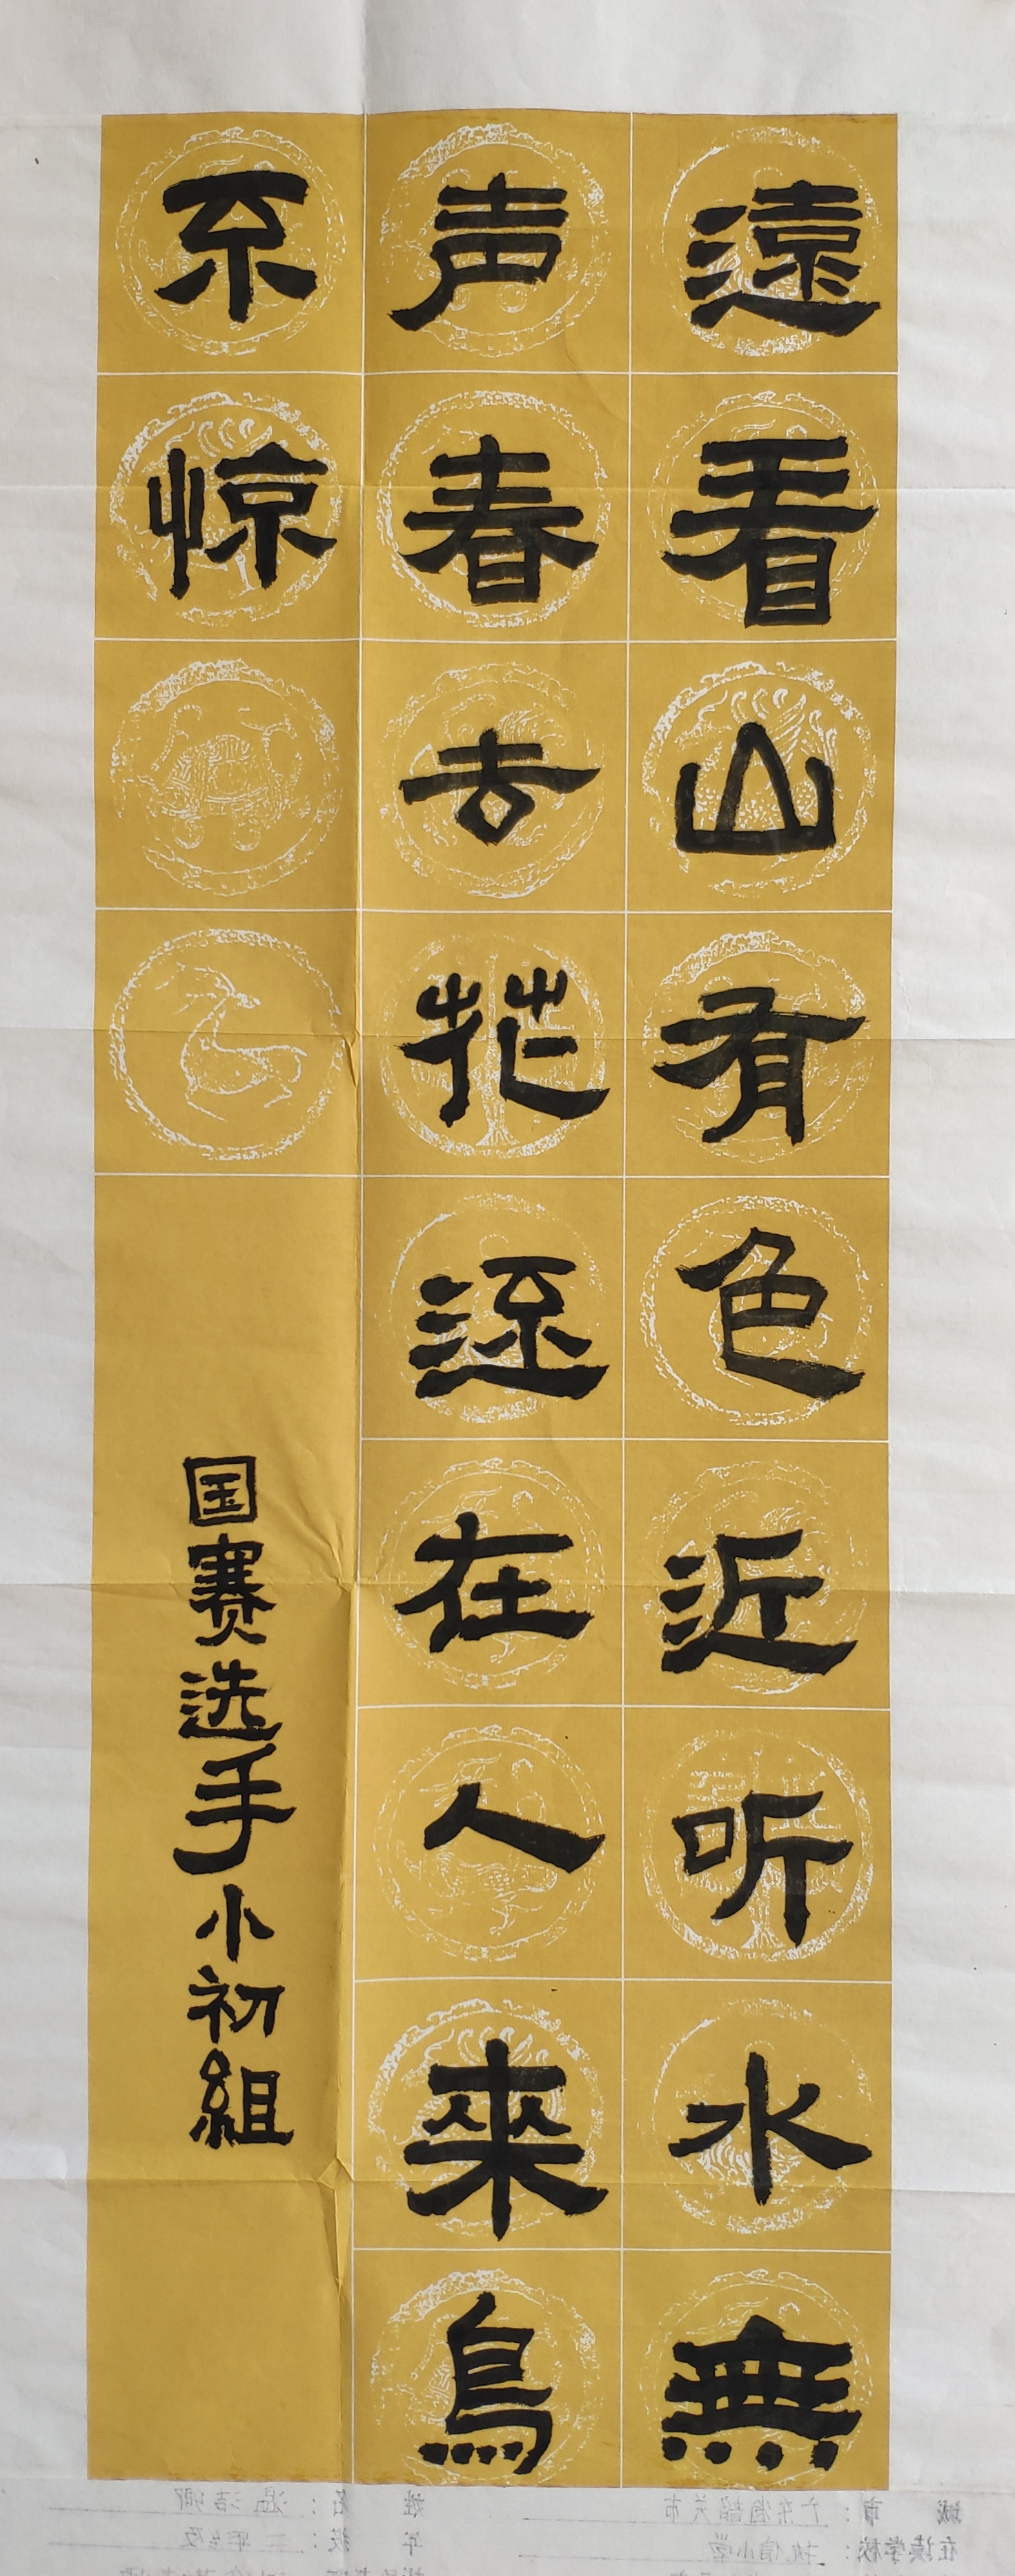 遠看山有色近听水無
声春去花还在人來鳥
不惊
国赛选手小初組
城市：广东省韶关市
姓名：温洁卿
在读学校：执信小学
年级：三年级